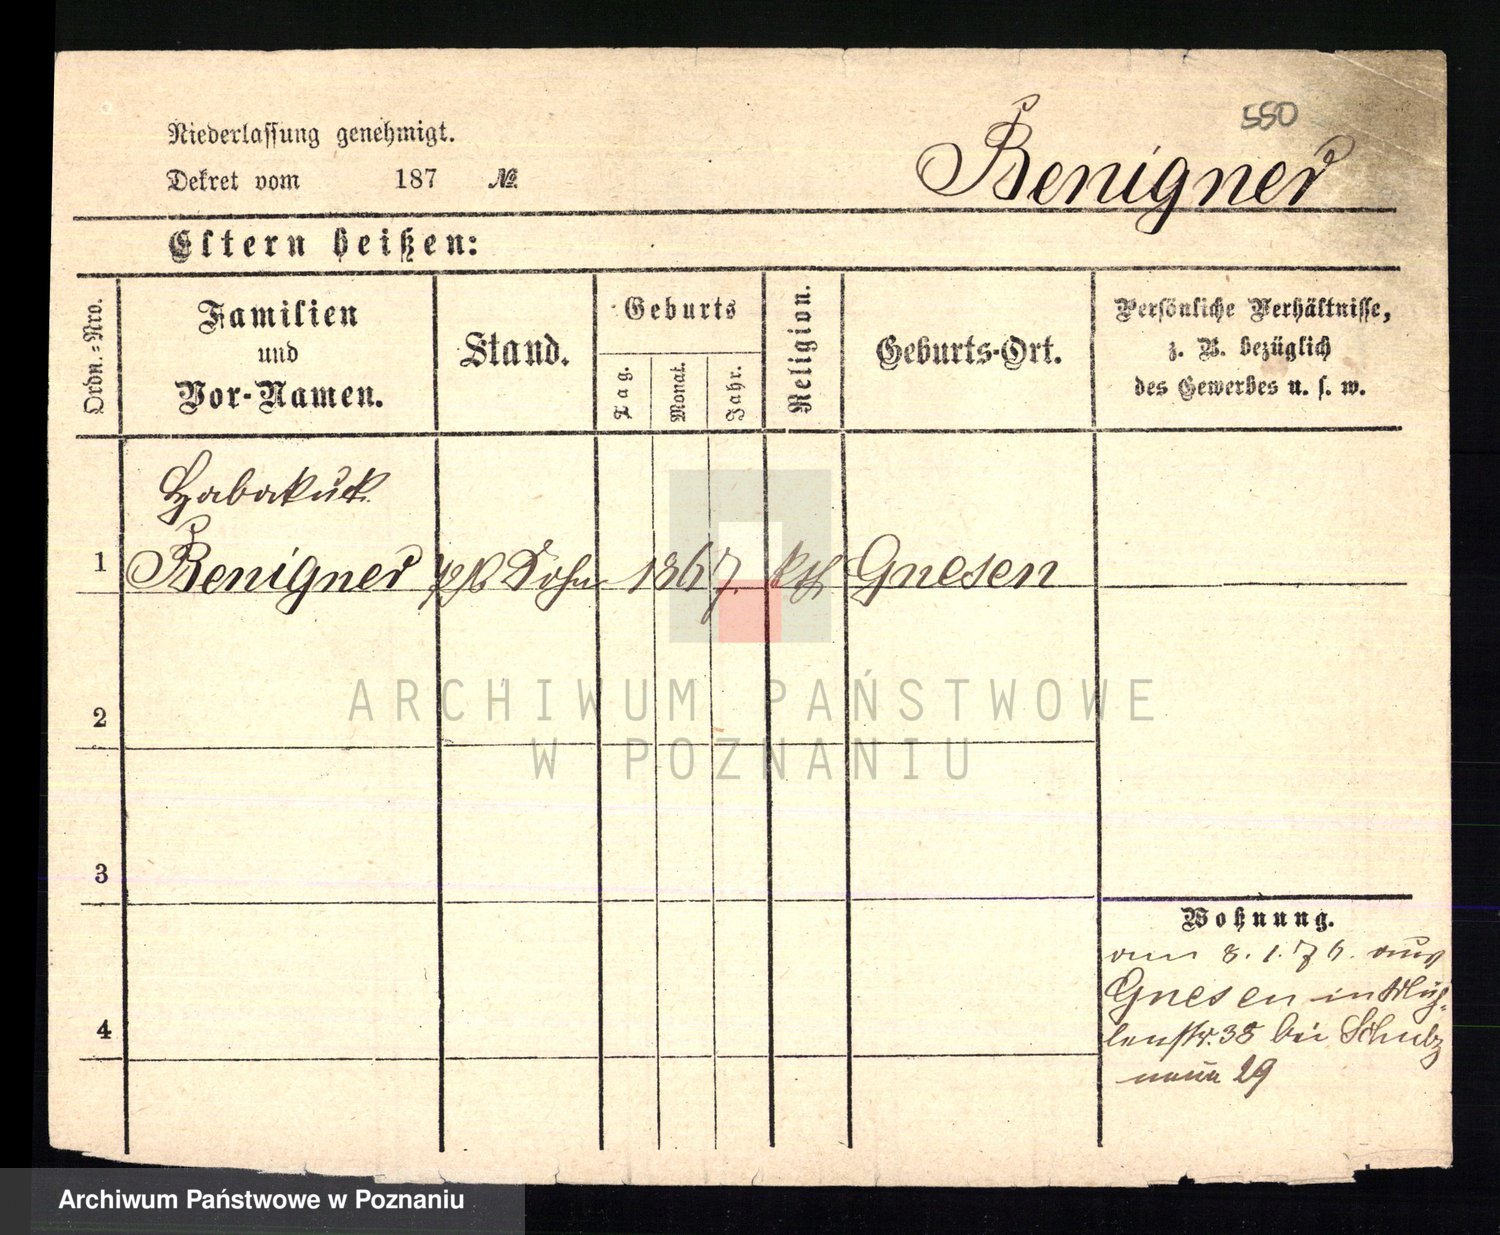 550
Niederlassung genehmigt.
Dekret vom 187 №
Benigner
Eltern heißen:
Ordn.-Nro.
Familien
und
Vor-Namen.
Stand.
Geburts
Tag.
Monat.
Jahr.
Religion.
Geburts-Ort.
Persönliche Verhältnisse,
z. B. bezüglich
des Gewerbes u. s. w.
Habakuck
1 Benigner Sohn 1867. kth Gnesen
2
3
4
Wohnung.
am 8. 1. 76. aus
Gnesen in Müh-
lenstr. 38 bei Schulz
29
ARCHIWUM PAŃSTWOWE
W POZNANIU
Archiwum Państwowe w Poznaniu